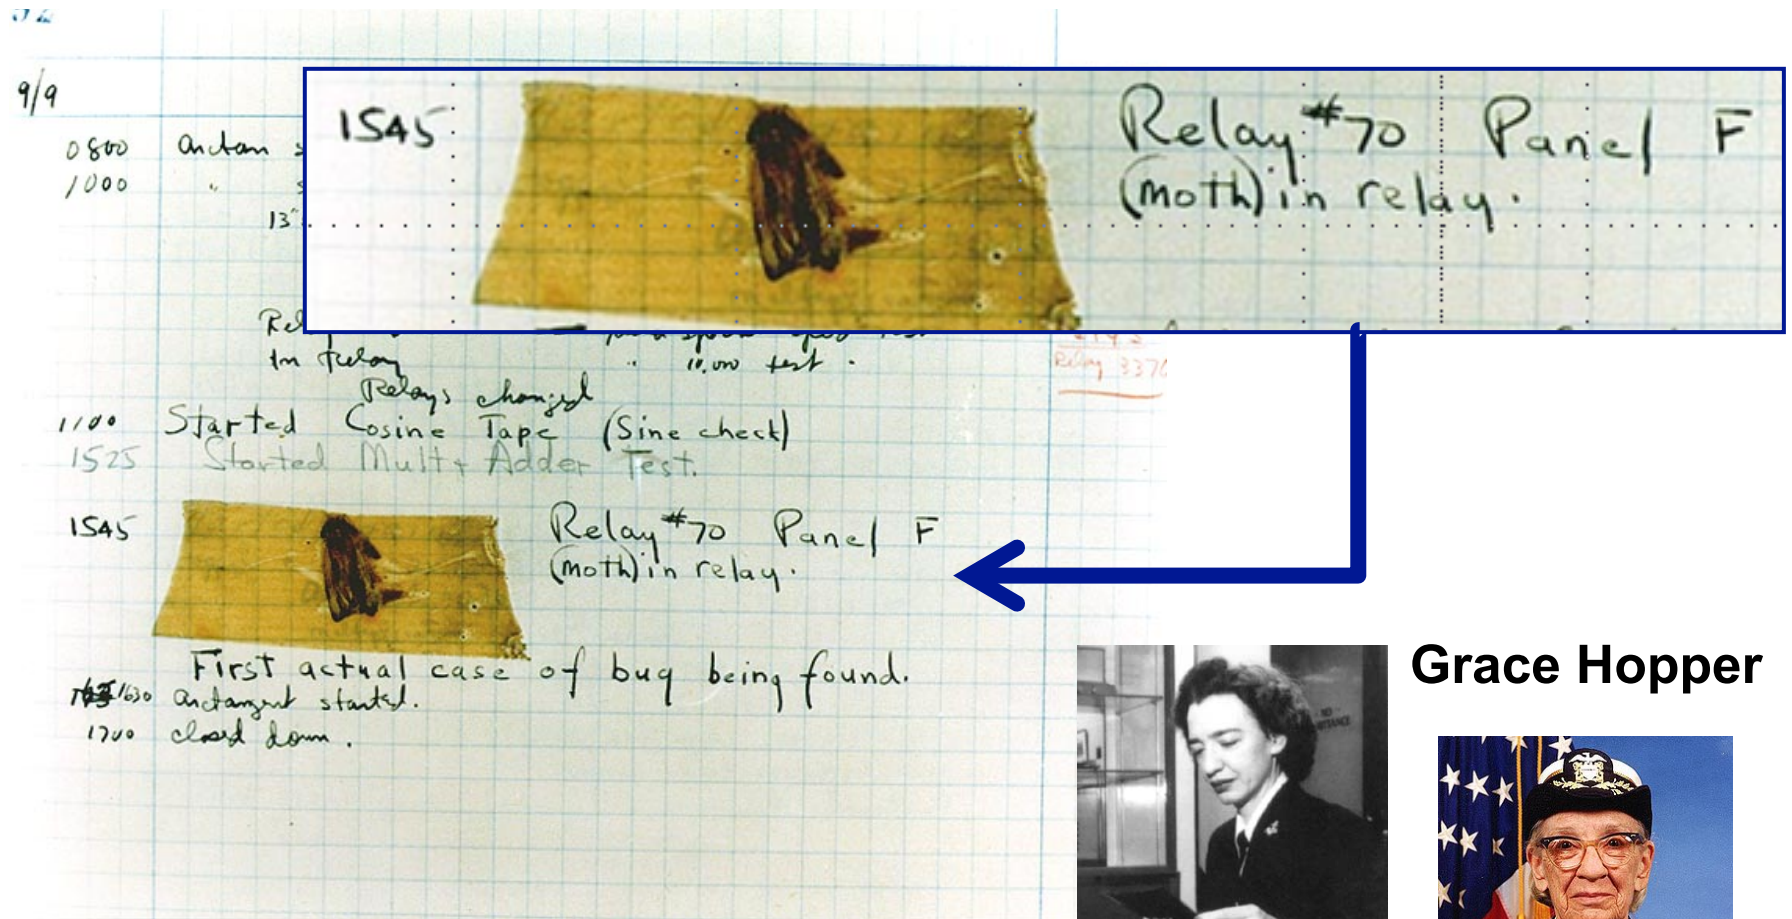 9/9
1545 Relay #70 Panel F
(moth) in relay.
0800
1000
13"
Relay 3370
in relay
10,000 test.
Relays changed
1100 Started Cosine Tape (Sine check)
1525 Started Mult + Adder Test.
1545 Relay #70 Panel F
(moth) in relay.
First actual case of bug being found.
1630 arctangent started.
1700 closed down.
Grace Hopper
NO